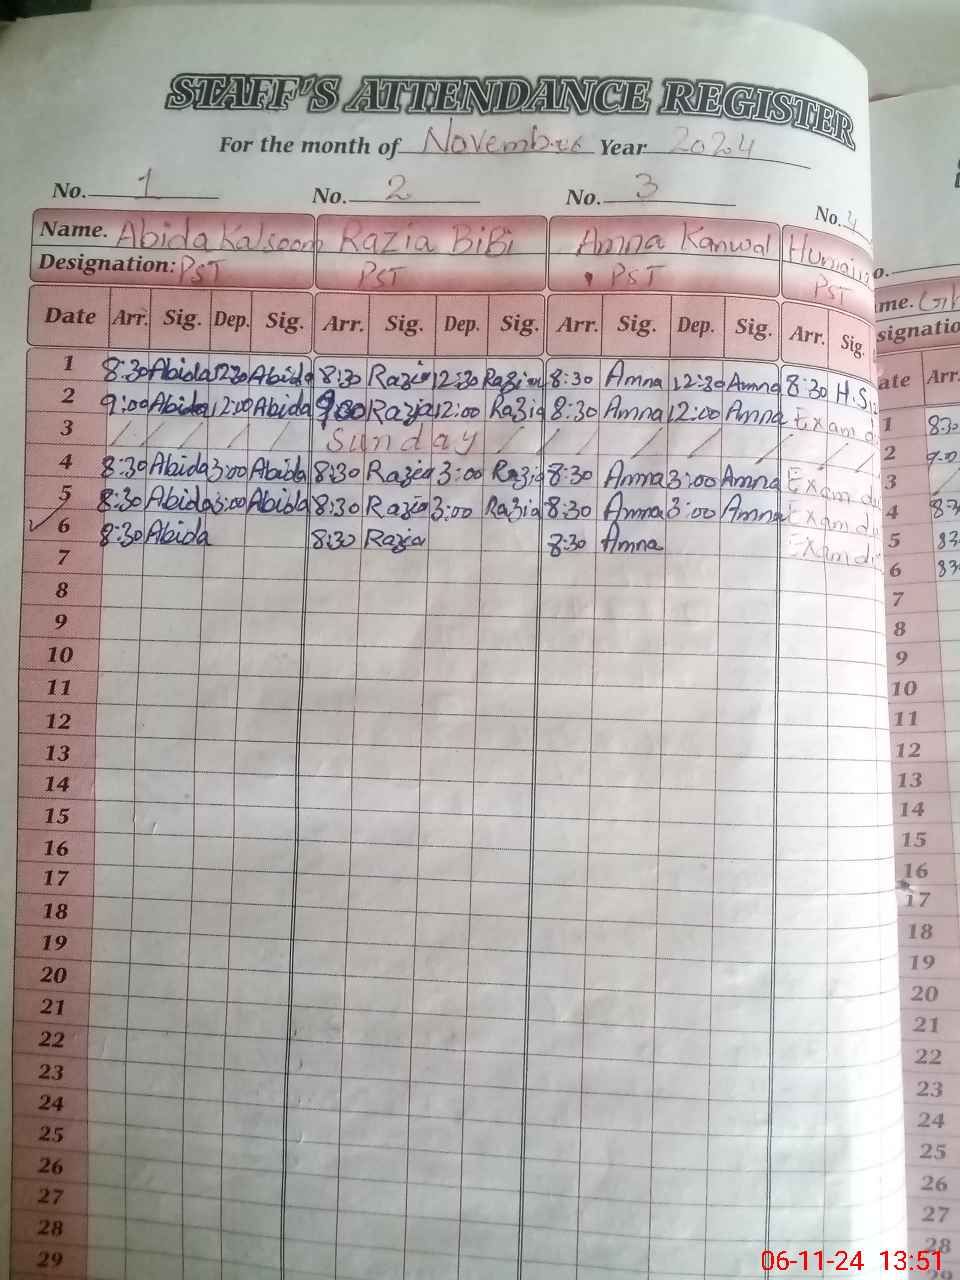 STAFF'S ATTENDANCE REGISTER
For the month of November Year 2024
No. 1 No. 2 No. 3 No. 4
Name. Abida Kalsoom Razia BiBi Amna Kanwal
Designation: PST PST PST PST
Date Arr. Sig. Dep. Sig. Arr. Sig. Dep. Sig. Arr. Sig. Dep. Sig. Arr. Sig.
1 8:30 Abida 12:30 Abida 8:30 Razia 12:30 Razia 8:30 Amna 12:30 Amna 8:30
2 9:00 Abida 12:00 Abida 9:00 Razia 12:00 Razia 8:30 Amna 12:00 Amna Exam
3 Sunday
4 8:30 Abida 3:00 Abida 8:30 Razia 3:00 Razia 8:30 Amna 3:00 Amna Exam
5 8:30 Abida 3:00 Abida 8:30 Razia 3:00 Razia 8:30 Amna 3:00 Amna Exam
6 8:30 Abida 8:30 Razia 8:30 Amna Exam
7
8
9
10
11
12
13
14
15
16
17
18
19
20
21
22
23
24
25
26
27
28
29
Arr.
1
2 9:00
3
4
5
6
7
8
9
10
11
12
13
14
15
16
17
18
19
20
21
22
23
24
25
26
27
28
06-11-24 13:51